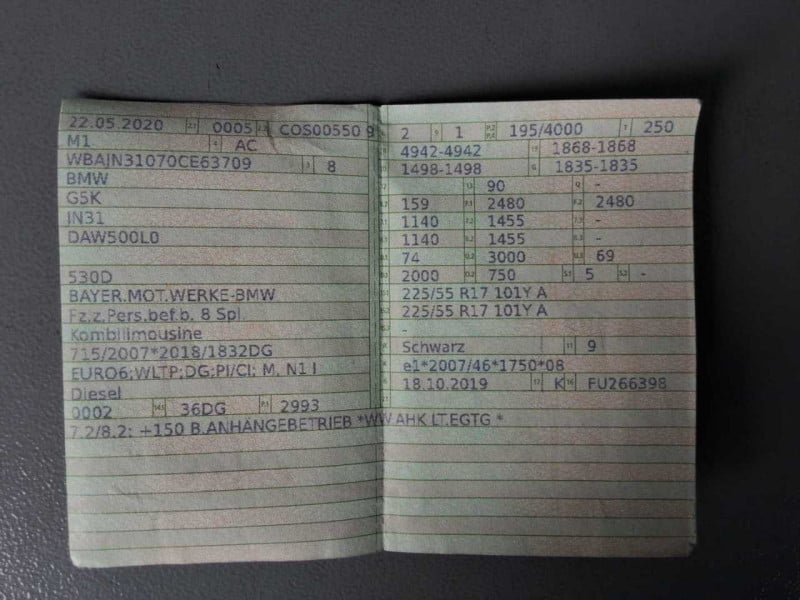 22.05.2020 0005 COS00550 9
M1 AC
WBAJN31070CE63709 8
BMW
G5K
JN31
DAW500L0
530D
BAYER.MOT.WERKE-BMW
Fz.z.Pers.bef.b. 8 Spl.
Kombilimousine
715/2007*2018/1832DG
EURO6;WLTP;DG;PI/CI; M, N1 I
Diesel
0002 36DG 2993
7.2/8.2: +150 B.ANHÄNGEBETRIEB *WW AHK LT.EGTG *
2 1 195/4000 250
4942-4942 1868-1868
1498-1498 1835-1835
90 -
159 2480 2480
1140 1455 -
1140 1455 -
74 3000 69
2000 750 5 -
225/55 R17 101Y A
225/55 R17 101Y A
-
Schwarz 9
e1*2007/46*1750*08
18.10.2019 K FU266398